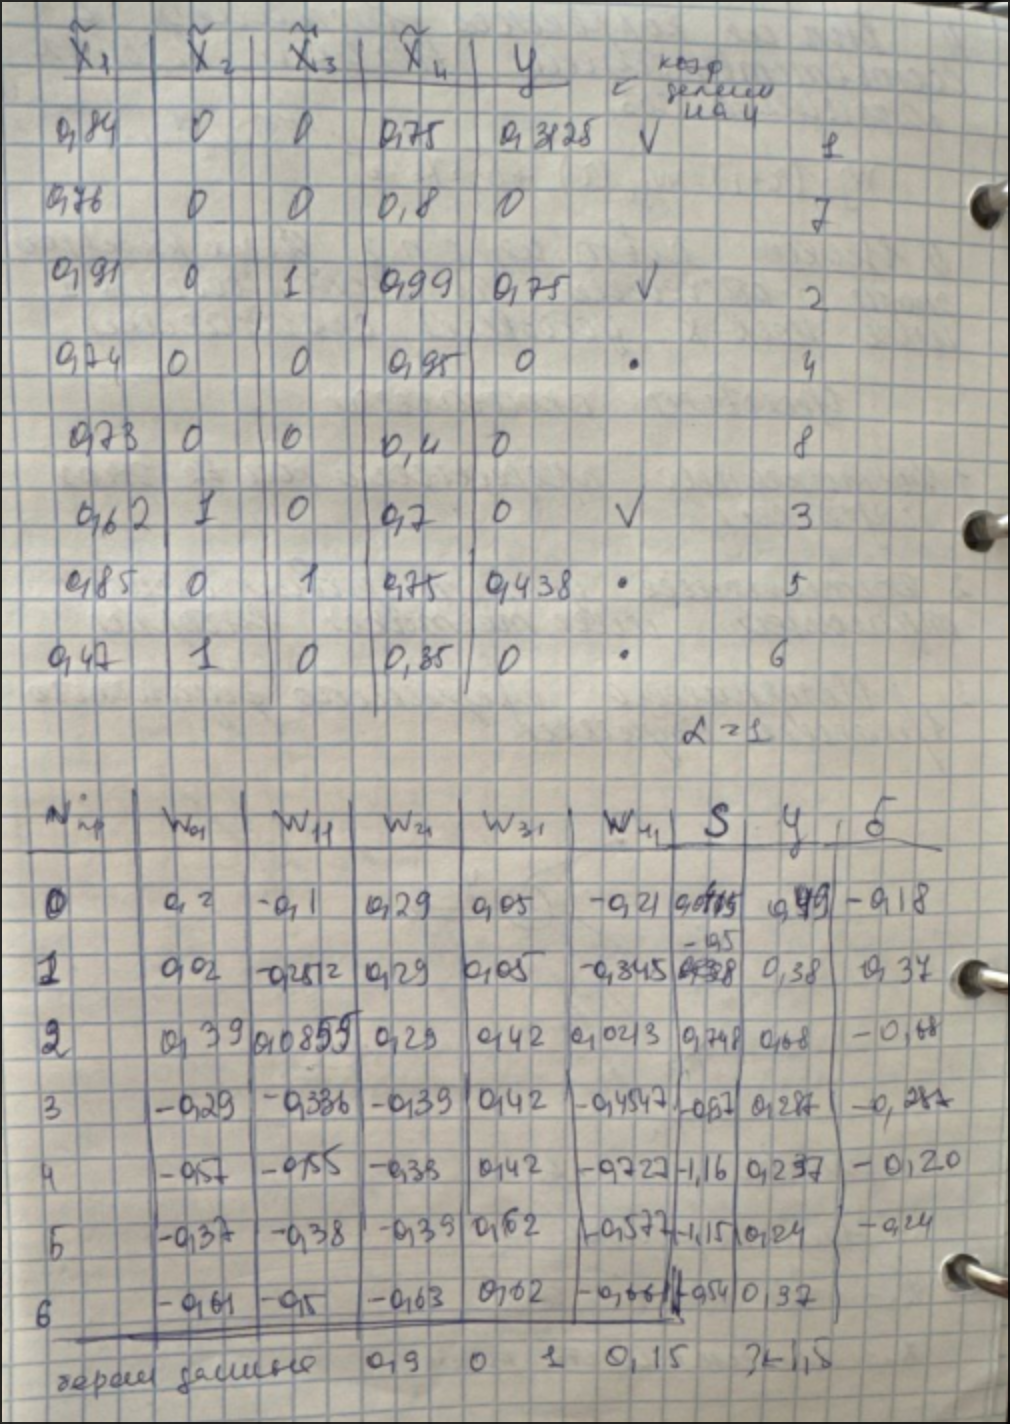 x̃₁ x̃₂ x̃₃ x̃₄ y
0,84 0 0 0,75 0,3125 V 1
0,76 0 0 0,8 0 7
0,91 0 1 0,99 0,75 V 2
0,74 0 0 0,95 0 • 4
0,73 0 0 0,4 0 8
0,62 1 0 0,7 0 V 3
0,85 0 1 0,75 0,438 • 5
0,47 1 0 0,35 0 • 6
α = 1
N пр W₀₁ W₁₁ W₂₁ W₃₁ W₄₁ S y δ
0 0,2 -0,1 0,29 0,05 -0,21 0,49 -0,18
-0,5
1 0,02 -0,2512 0,29 0,05 -0,345 0,38 0,37
2 0,39 0,0855 0,29 0,42 0,0213 0,748 0,68 -0,68
3 -0,29 -0,336 -0,39 0,42 -0,4547 0,287 -0,287
4 -0,57 -0,55 -0,39 0,42 -0,727 -1,16 0,237 -0,20
5 -0,37 -0,38 -0,39 0,62 -0,577 -1,15 0,24 -0,24
6 -0,61 -0,5 -0,63 0,62 -0,661 -0,54 0,37
данные 0,9 0 1 0,15